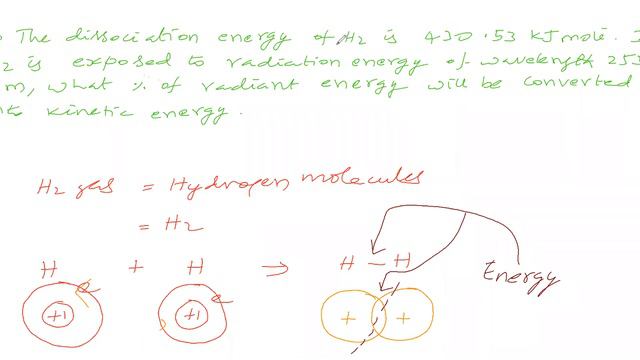 The dissociation energy of H2 is 430.53 kJ mole. I
2 is exposed to radiation energy of wavelength 253
m, what % of radiant energy will be converted
kinetic energy.
H2 gas = Hydrogen molecules
= H2
H + H ⇒ H – H
Energy
e e
+1 +1 + +